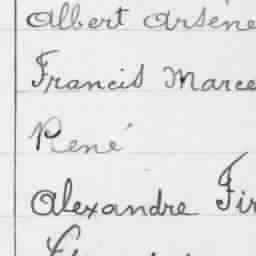 Albert Arsène
Francis Marce
René
Alexandre Fir